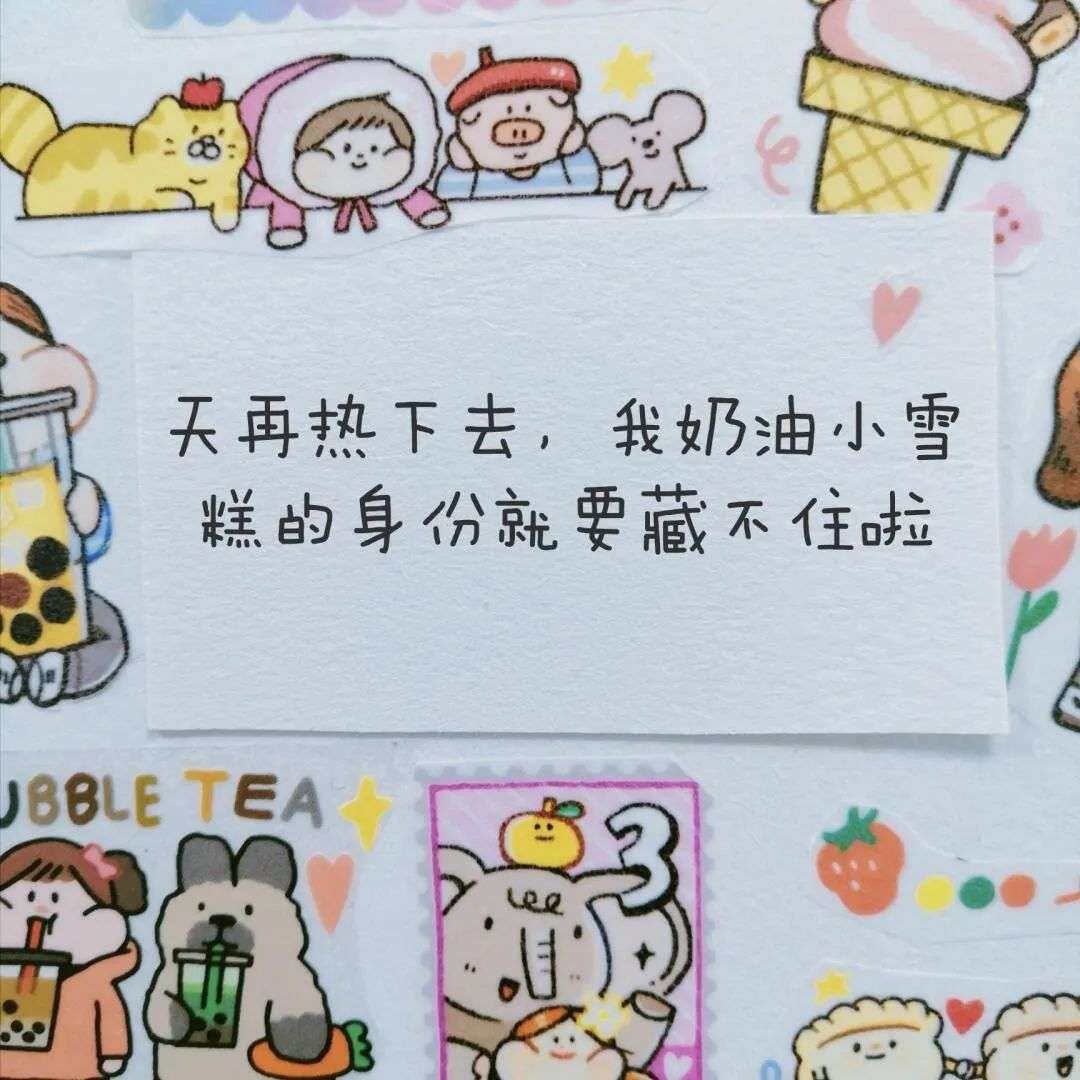 天再热下去，我奶油小雪
糕的身份就要藏不住啦
UBBLE TEA
3